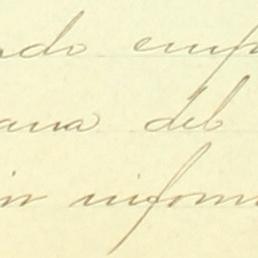 ndo emp
ana del
in inform